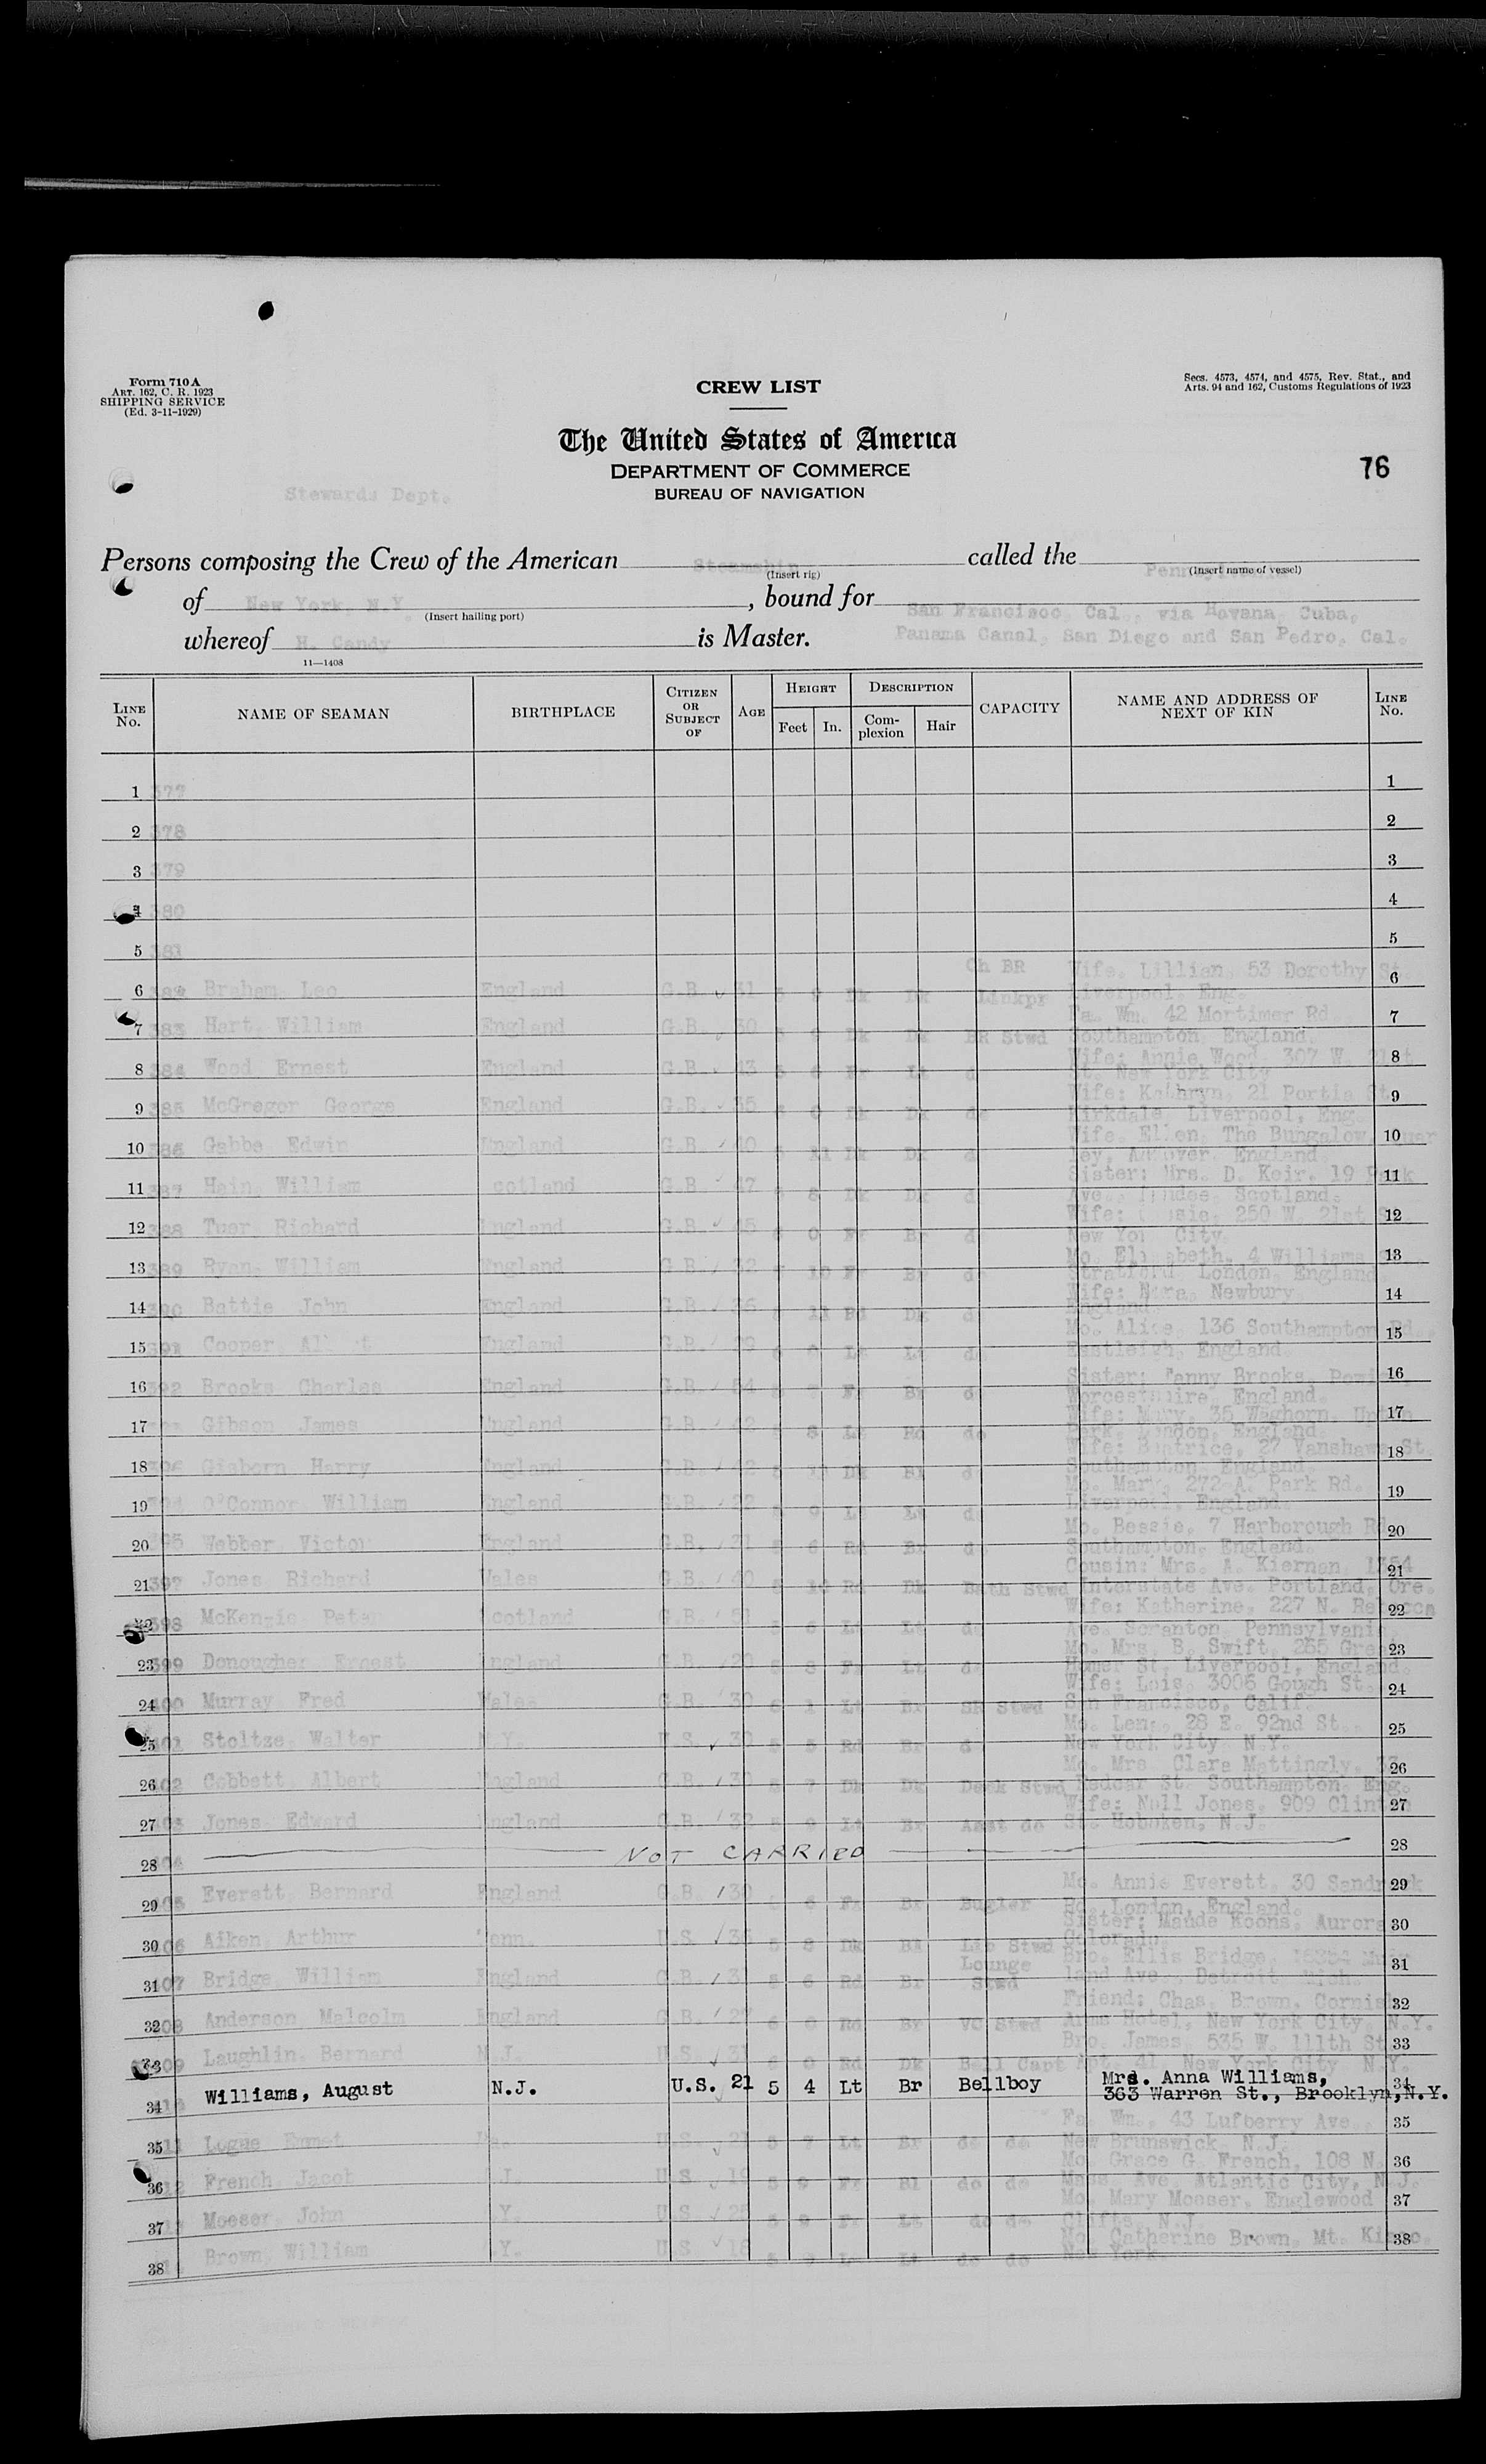 Form 710A
ART. 162, C. R. 1923
SHIPPING SERVICE
(Ed. 3-11-1929)
CREW LIST
Secs. 4573, 4574, and 4575, Rev. Stat., and
Arts. 94 and 162, Customs Regulations of 1923
The United States of America
DEPARTMENT OF COMMERCE
BUREAU OF NAVIGATION
76
Stewards Dept.
Persons composing the Crew of the American Steamship called the
(Insert rig) (Insert name of vessel)
of New York, N.Y. , bound for San Francisco, Cal., via Havana, Cuba,
(Insert hailing port)
whereof H. Candy is Master. Panama Canal, San Diego and San Pedro, Cal.
11—1408
LINE No. NAME OF SEAMAN BIRTHPLACE CITIZEN OR SUBJECT OF AGE HEIGHT Feet In. DESCRIPTION Complexion Hair CAPACITY NAME AND ADDRESS OF NEXT OF KIN LINE No.
1 377 1
2 378 2
3 379 3
4 380 4
5 381 5
6 Braham, Leo England G.B. 31 Dk Dk Ch BR Linkpr Wife. Lillian, 53 Dorothy St. Liverpool, Eng. 6
7 383 Hart, William England G.B. 30 Dk Dk BR Stwd Fa. Wm. 42 Mortimer Rd. Southampton, England. 7
8 384 Wood Ernest England G.B. 43 Lt Wife: Annie Wood, 307 W. St. New York City 8
9 385 McGregor George England G.B. 35 Dk Dk do Wife: Kathryn, 21 Portia St. Kirkdale, Liverpool, Eng. 9
10 386 Gabbe Edwin England G.B. 40 11 Dk Dk Wife. Ellen, The Bungalow, England. 10
11 387 Hain, William Scotland G.B. 47 8 Dk Dk Sister: Mrs. D. Keir, 19 Ave., Scotland. 11
12 388 Tuer Richard England G.B. 45 0 Br Wife: 250 W. 21st New York City. 12
13 389 Ryan, William England G.B. 32 10 Br do Mo. Elizabeth, 4 Williams Stratford London, England 13
14 390 Battie John England G.B. 36 11 Rd Dk do Wife: Newbury England. 14
15 391 Cooper England G.B. 29 Lt do Mo. Alice, 136 Southampton Rd. Eastleigh, England. 15
16 392 Brooks Charles England G.B. 54 Br Sister: Fanny Brooks, Worcestshire, England. 16
17 Gibson James England G.B. 42 8 Rd do Wife: Mary, 35 Waghorn, Park, London, England. 17
18 Gisborn Harry England G.B. 42 Dk Wife: Beatrice, 27 St. Southampton, England. 18
19 O'Connor William England G.B. 22 9 Mo. Mary, 272-A. Park Rd. Liverpool, England. 19
20 Webber Victor England G.B. 21 6 Rd Br Mo. Bessie, 7 Harborough Southampton, England. 20
21 397 Jones Richard Wales G.B. 40 10 Rd Dk Bath Stwd Cousin: Mrs. A. Kiernan, Interstate Ave. Portland, Ore. 21
22 398 McKenzie Peter Scotland G.B. 51 6 Lt Lt do Wife: Katherine, 227 N. Rebecca Ave. Scranton, Pennsylvania 22
23 399 Donougher Ernest England G.B. 20 8 Lt Mo. Mrs. B. Swift, 265 Great Homer St. Liverpool, England. 23
24 400 Murray Fred Wales G.B. 30 6 1 Lt Br SR Stwd Wife: Lois, 3006 Gough St. San Francisco, Calif. 24
25 401 Stoltze Walter N.Y. U.S. 30 5 5 Rd Br Mo. Lena, 28 E. 92nd St. New York City N.Y. 25
26 402 Cobbett Albert England G.B. 30 7 Dk Dk Deck Stwd Mo. Mrs. Clara Mattingly, Redcar St. Southampton, Eng. 26
27 Jones Edward England G.B. 32 9 Lt Br Asst do Wife: Nell Jones, 909 Clinton St. Hoboken, N.J. 27
28 NOT CARRIED 28
29 Everett, Bernard England G.B. 30 6 Br Bugler Mo. Annie Everett, 30 Rd. London, England. 29
30 Aiken, Arthur Tenn. U.S. 36 5 8 Lib Stwd Sister: Maude Koons, Aurora Colorado. 30
31 Bridge, William England G.B. 31 5 6 Rd Br Lounge Stwd Bro. Ellis Bridge, Ave., Detroit Mich. 31
32 Anderson Malcolm England G.B. 27 6 0 Rd Br Stwd Friend: Chas. Brown, Cornish Arms Hotel, New York City, N.Y. 32
33 Laughlin, Bernard N.J. U.S. 31 6 0 Rd Dk Bell Capt Bro. James, 535 W. 111th St. Apt. 41, New York City N.Y. 33
34 Williams, August N.J. U.S. 21 5 4 Lt Br Bellboy Mrs. Anna Williams, 363 Warren St., Brooklyn, N.Y. 34
35 Logue Emmet U.S. 21 5 7 Lt Br do do Fa. Wm., 43 Lufberry Ave. New Brunswick N.J. 35
36 French, Jacob N.J. U.S. 19 5 9 Bl do do Mo. Grace G. French, 108 N. Mass. Ave. Atlantic City, N.J. 36
37 Moeser, John N.Y. U.S. 25 5 9 Lt do do Mo. Mary Moeser, Englewood Cliffs, N.J. 37
38 Brown William N.Y. U.S. 18 do do Mo. Catherine Brown, Mt. Kisco, New York. 38